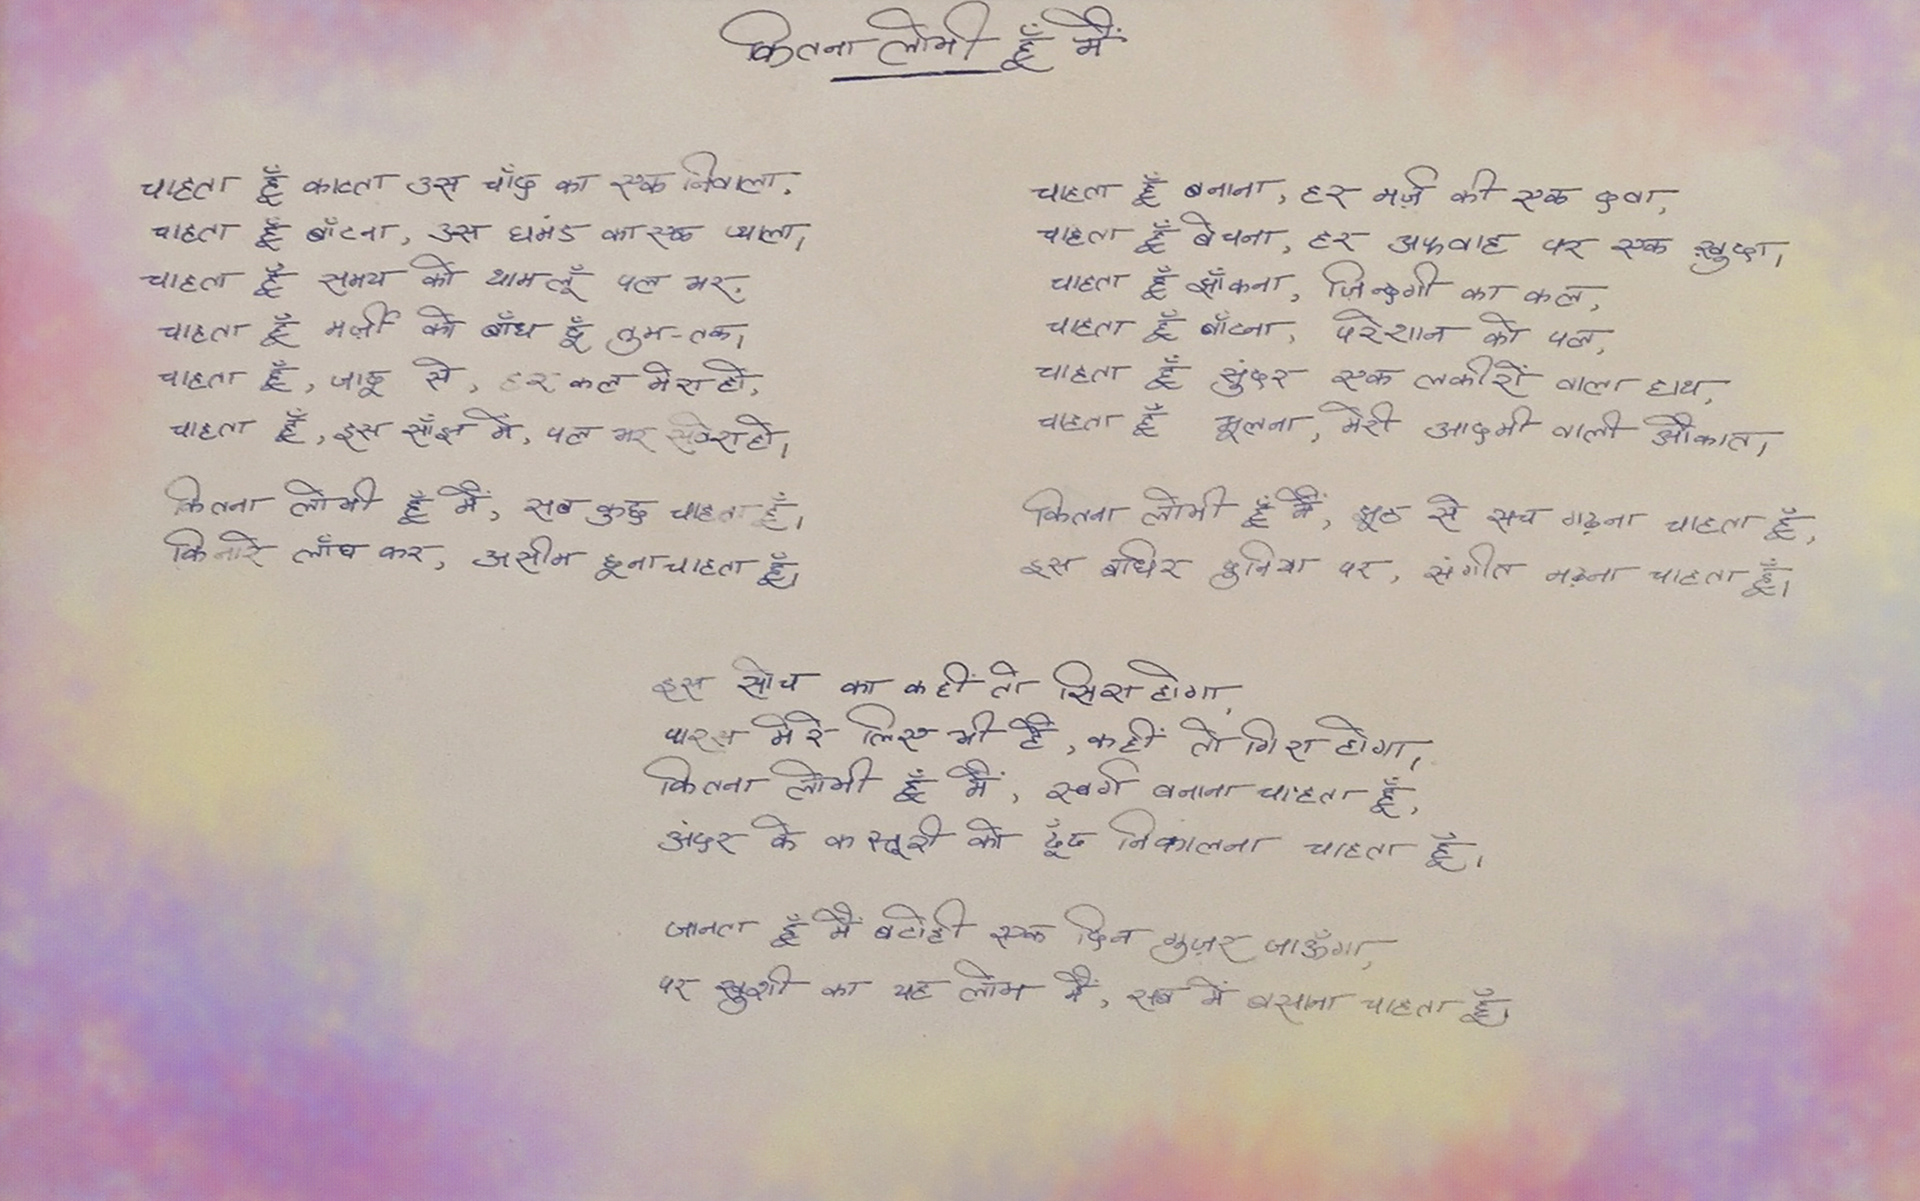 कितना लोभी हूँ मैं
चाहता हूँ काटता उस चाँद का एक निवाला,
चाहता हूँ बाँटना, उस घमंड का एक प्याला,
चाहता हूँ समय को थाम लूँ पल भर,
चाहता हूँ मर्ज़ी को बाँध दूँ तुम-तक,
चाहता हूँ, जादू से, हर कल मेरा हो,
चाहता हूँ, इस साँझ में, पल भर सवेरा हो,
कितना लोभी हूँ मैं, सब कुछ चाहता हूँ,
किनारे लाँघ कर, असीम छूना चाहता हूँ,
चाहता हूँ बनाना, हर मर्ज़ की एक दवा,
चाहता हूँ बेचना, हर अफवाह पर एक ख़ुदा,
चाहता हूँ झाँकना, ज़िन्दगी का कल,
चाहता हूँ बाँटना, परेशान को पल,
चाहता हूँ सुंदर एक लकीरों वाला हाथ,
चाहता हूँ भूलना, मेरी आदमी वाली औकात,
कितना लोभी हूँ मैं, झूठ से सच गढ़ना चाहता हूँ,
इस बधिर दुनिया पर, संगीत मढ़ना चाहता हूँ,
इस सोच का कहीं तो सिरा होगा,
पारस मेरे लिए भी है, कहीं तो गिरा होगा,
कितना लोभी हूँ मैं, स्वर्ग बनाना चाहता हूँ,
अंदर के कस्तूरी को ढूँढ निकालना चाहता हूँ,
जानता हूँ मैं बटोही एक दिन गुज़र जाऊँगा,
पर खुशी का यह लोभ मैं, सब में बसाना चाहता हूँ,